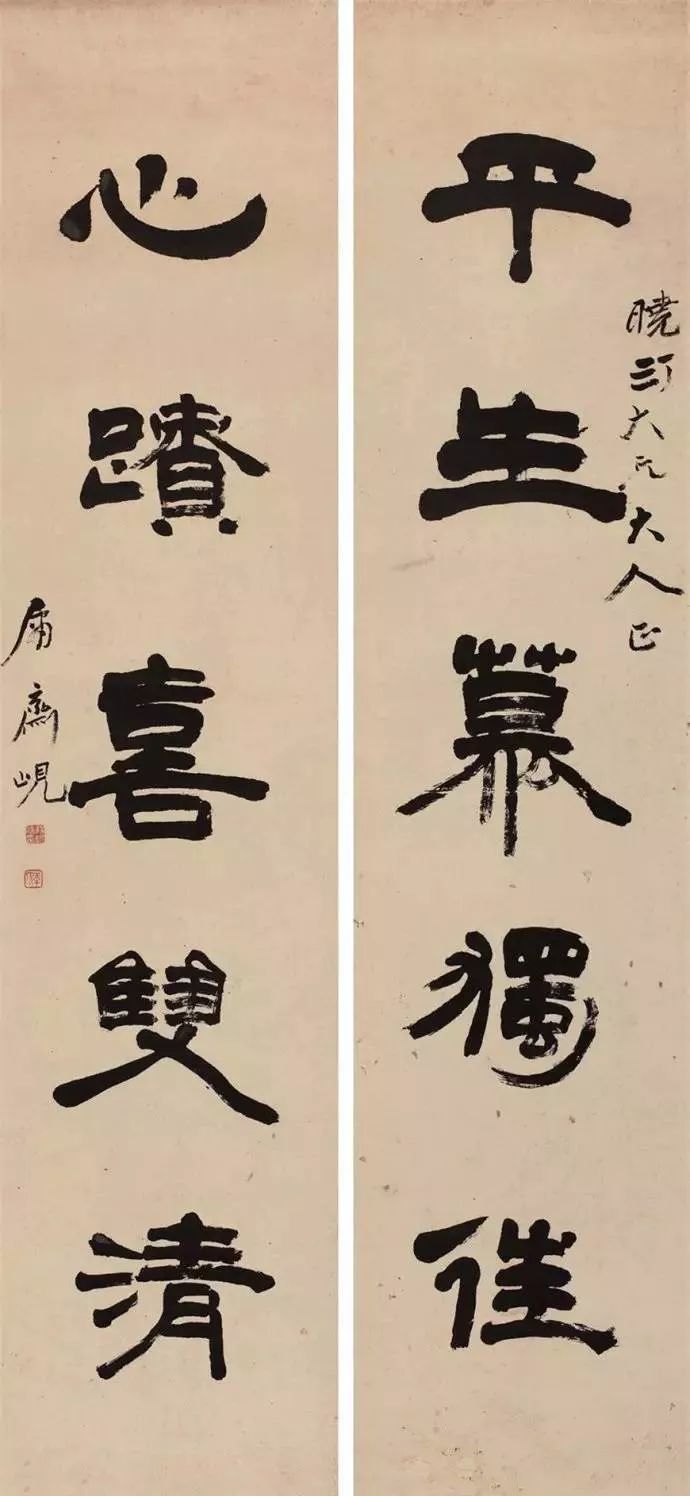 曉汀大兄大人正
平生慕獨徃
心蹟喜雙清
庸齋峴